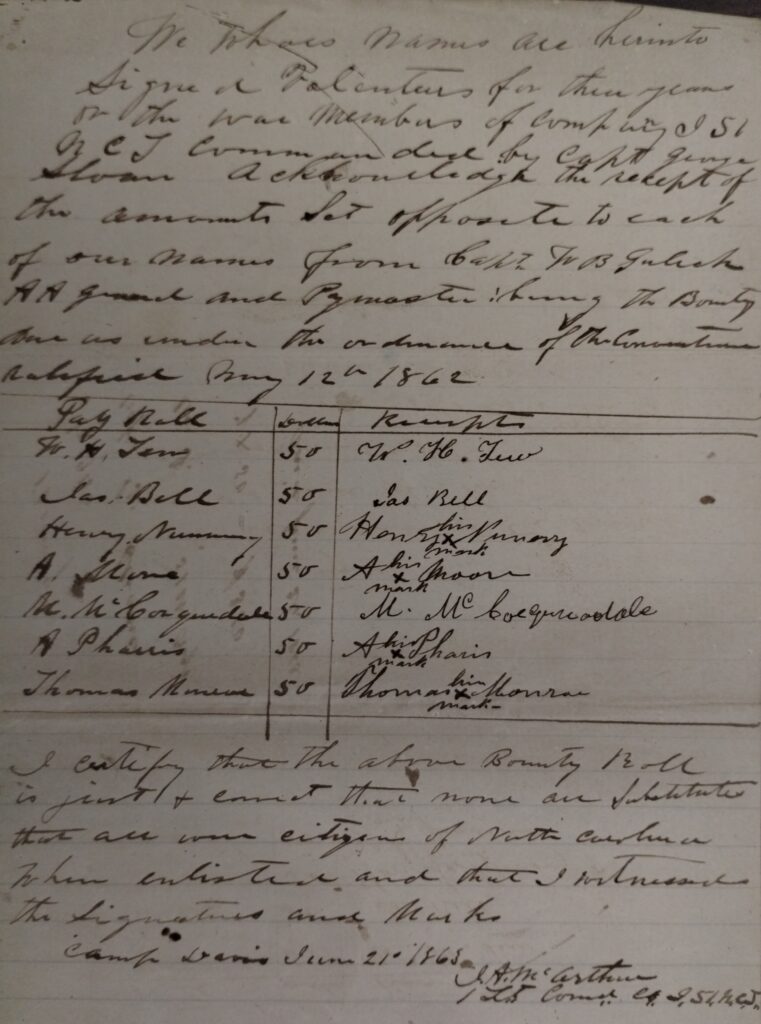 We whoes names are herinto
Signed Volenteers for three years
or the war members of Company I 51
N C T Commanded by Capt George
Sloan Acknowledge the receipt of
the amounts Set opposite to each
of our names from Capt W B Gulick
A A general and Pymaster being the Bounty
due us under the ordinance of the Convention
ratified May 12th 1862
Pay Roll Dollars Receipts
W. H. Tew 50 W. H. Tew
Jas. Bell 50 Jas Bell
Henry Nunnery 50 Henry his x mark Nunery
A. Moore 50 A his x mark Moore
M. McCorquedale 50 M. Mc Coequeodale
A Pharris 50 A his x mark Pharis
Thomas Monroe 50 Thomas his x mark Monroe
I certify that the above Bounty Roll
is just & correct that none are Substitutes
that all were citizens of North Carolina
when enlisted and that I witnessed
the Signatures and Marks
Camp Davis June 21st 1863
J. A. McArthur
1 Lt Comd. Co I, 51, N.C.T.